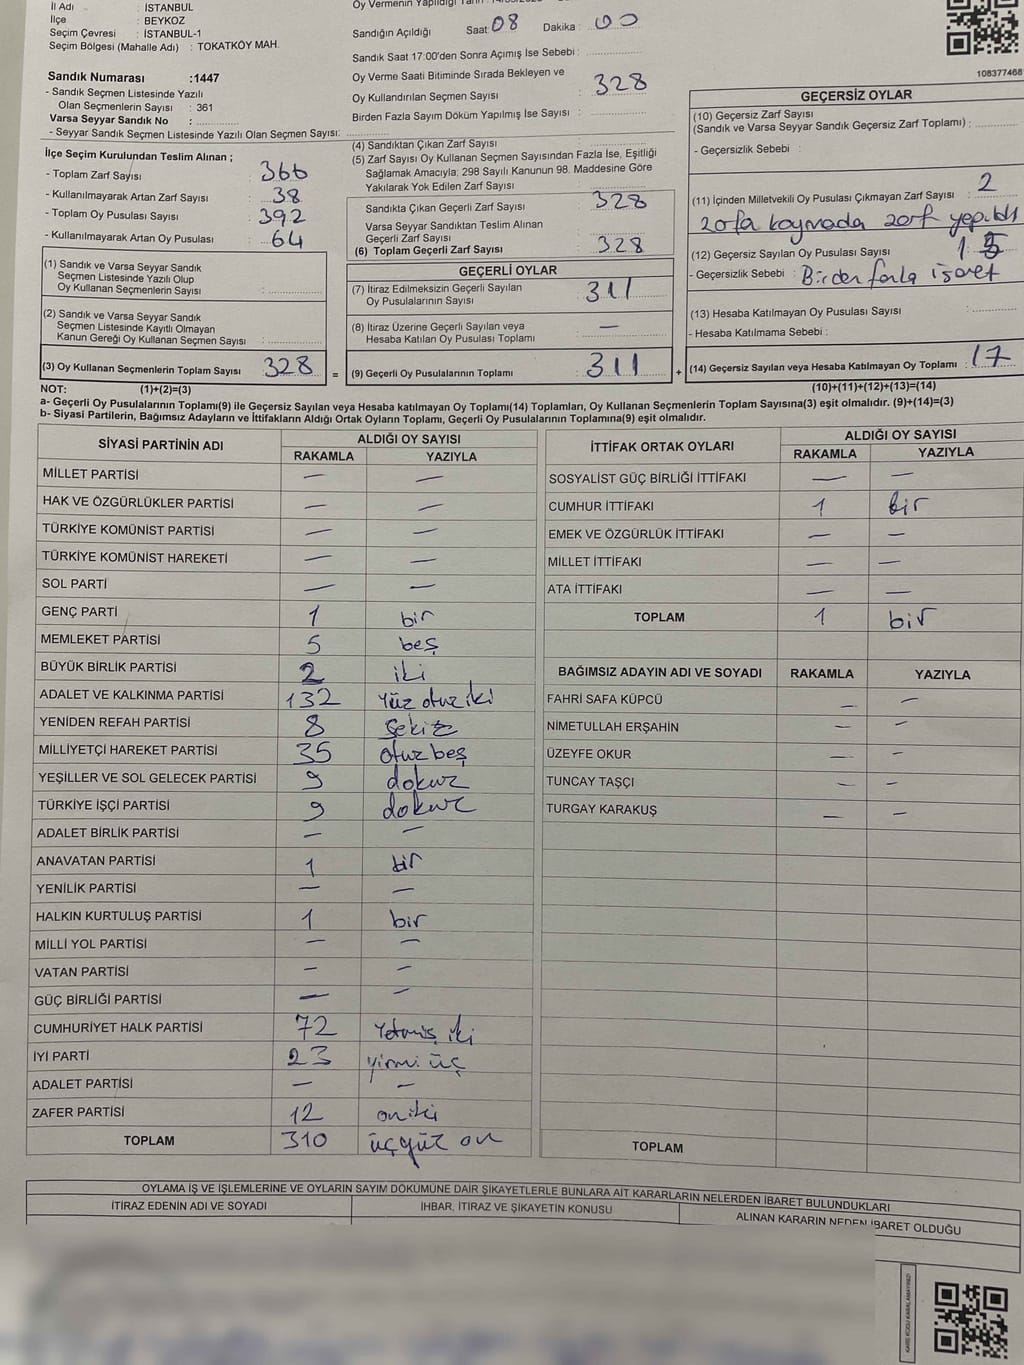 İl Adı : İSTANBUL
İlçe : BEYKOZ
Seçim Çevresi : İSTANBUL-1
Seçim Bölgesi (Mahalle Adı) : TOKATKÖY MAH.
Sandık Numarası :1447
- Sandık Seçmen Listesinde Yazılı
Olan Seçmenlerin Sayısı : 361
Varsa Seyyar Sandık No :
- Seyyar Sandık Seçmen Listesinde Yazılı Olan Seçmen Sayısı:
İlçe Seçim Kurulundan Teslim Alınan ;
- Toplam Zarf Sayısı : 366
- Kullanılmayarak Artan Zarf Sayısı : 38
- Toplam Oy Pusulası Sayısı : 392
- Kullanılmayarak Artan Oy Pusulası : 64
(1) Sandık ve Varsa Seyyar Sandık
Seçmen Listesinde Yazılı Olup
Oy Kullanan Seçmenlerin Sayısı :
(2) Sandık ve Varsa Seyyar Sandık
Seçmen Listesinde Kayıtlı Olmayan
Kanun Gereği Oy Kullanan Seçmen Sayısı :
(3) Oy Kullanan Seçmenlerin Toplam Sayısı : 328 =
Oy Vermenin Yapıldığı
Sandığın Açıldığı Saat: 08 Dakika : 00
Sandık Saat 17:00'den Sonra Açımış İse Sebebi :
Oy Verme Saati Bitiminde Sırada Bekleyen ve
Oy Kullandırılan Seçmen Sayısı : 328
Birden Fazla Sayım Döküm Yapılmış İse Sayısı :
(4) Sandıktan Çıkan Zarf Sayısı :
(5) Zarf Sayısı Oy Kullanan Seçmen Sayısından Fazla İse, Eşitliği
Sağlamak Amacıyla; 298 Sayılı Kanunun 98. Maddesine Göre
Yakılarak Yok Edilen Zarf Sayısı :
Sandıkta Çıkan Geçerli Zarf Sayısı : 328
Varsa Seyyar Sandıktan Teslim Alınan
Geçerli Zarf Sayısı :
(6) Toplam Geçerli Zarf Sayısı : 328
GEÇERLİ OYLAR
(7) İtiraz Edilmeksizin Geçerli Sayılan
Oy Pusulalarının Sayısı : 311
(8) İtiraz Üzerine Geçerli Sayılan veya
Hesaba Katılan Oy Pusulası Toplamı : —
(9) Geçerli Oy Pusulalarının Toplamı : 311 +
108377468
GEÇERSİZ OYLAR
(10) Geçersiz Zarf Sayısı
(Sandık ve Varsa Seyyar Sandık Geçersiz Zarf Toplamı) :
- Geçersizlik Sebebi :
(11) İçinden Milletvekili Oy Pusulası Çıkmayan Zarf Sayısı : 2
zarf yapıldı
(12) Geçersiz Sayılan Oy Pusulası Sayısı : 15
- Geçersizlik Sebebi : Birden fazla işaret
(13) Hesaba Katılmayan Oy Pusulası Sayısı :
- Hesaba Katılmama Sebebi :
(14) Geçersiz Sayılan veya Hesaba Katılmayan Oy Toplamı : 17
NOT: (1)+(2)=(3) (10)+(11)+(12)+(13)=(14)
a- Geçerli Oy Pusulalarının Toplamı(9) ile Geçersiz Sayılan veya Hesaba katılmayan Oy Toplamı(14) Toplamları, Oy Kullanan Seçmenlerin Toplam Sayısına(3) eşit olmalıdır. (9)+(14)=(3)
b- Siyasi Partilerin, Bağımsız Adayların ve İttifakların Aldığı Ortak Oyların Toplamı, Geçerli Oy Pusulalarının Toplamına(9) eşit olmalıdır.
SİYASİ PARTİNİN ADI ALDIĞI OY SAYISI
RAKAMLA YAZIYLA
MİLLET PARTİSİ — —
HAK VE ÖZGÜRLÜKLER PARTİSİ — —
TÜRKİYE KOMÜNİST PARTİSİ — —
TÜRKİYE KOMÜNİST HAREKETİ — —
SOL PARTİ — —
GENÇ PARTİ 1 bir
MEMLEKET PARTİSİ 5 beş
BÜYÜK BİRLİK PARTİSİ 2 iki
ADALET VE KALKINMA PARTİSİ 132 Yüz otuz iki
YENİDEN REFAH PARTİSİ 8 Sekiz
MİLLİYETÇİ HAREKET PARTİSİ 35 otuz beş
YEŞİLLER VE SOL GELECEK PARTİSİ 9 dokuz
TÜRKİYE İŞÇİ PARTİSİ 9 dokuz
ADALET BİRLİK PARTİSİ — —
ANAVATAN PARTİSİ 1 bir
YENİLİK PARTİSİ — —
HALKIN KURTULUŞ PARTİSİ 1 bir
MİLLİ YOL PARTİSİ — —
VATAN PARTİSİ — —
GÜÇ BİRLİĞİ PARTİSİ — —
CUMHURİYET HALK PARTİSİ 72 Yetmiş iki
İYİ PARTİ 23 yirmi üç
ADALET PARTİSİ — —
ZAFER PARTİSİ 12 on iki
TOPLAM 310 üçyüz on
İTTİFAK ORTAK OYLARI ALDIĞI OY SAYISI
RAKAMLA YAZIYLA
SOSYALİST GÜÇ BİRLİĞİ İTTİFAKI — —
CUMHUR İTTİFAKI 1 bir
EMEK VE ÖZGÜRLÜK İTTİFAKI — —
MİLLET İTTİFAKI — —
ATA İTTİFAKI — —
TOPLAM 1 bir
BAĞIMSIZ ADAYIN ADI VE SOYADI RAKAMLA YAZIYLA
FAHRİ SAFA KÜPCÜ — —
NİMETULLAH ERŞAHİN — —
ÜZEYFE OKUR — —
TUNCAY TAŞÇI — —
TURGAY KARAKUŞ — —
TOPLAM
OYLAMA İŞ VE İŞLEMLERİNE VE OYLARIN SAYIM DÖKÜMÜNE DAİR ŞİKAYETLERLE BUNLARA AİT KARARLARIN NELERDEN İBARET BULUNDUKLARI
İTİRAZ EDENİN ADI VE SOYADI İHBAR, İTİRAZ VE ŞİKAYETİN KONUSU ALINAN KARARIN NEDEN İBARET OLDUĞU